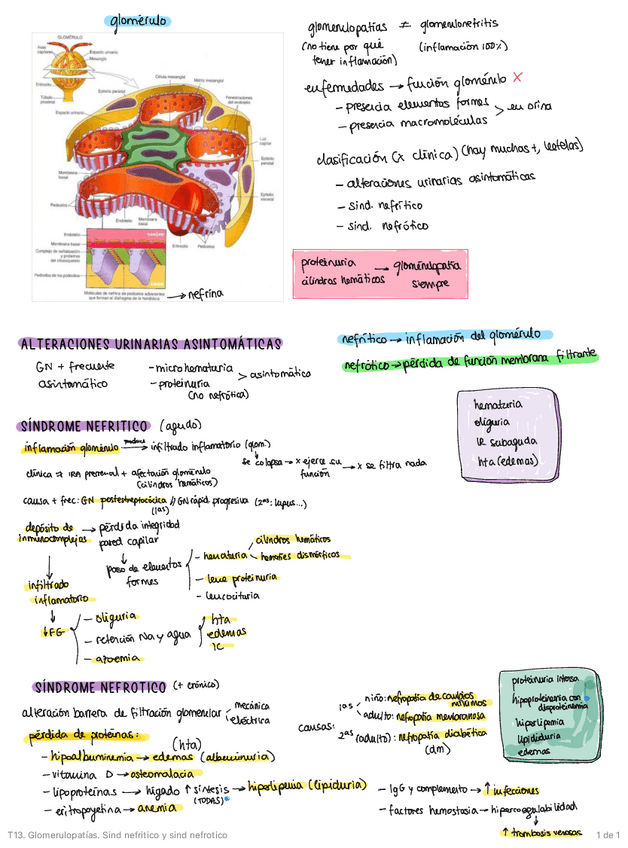 glomérulo
GLOMÉRULO
Asas capilares
Espacio urinario
Mesangio
Endotelio
Túbulo proximal
Espacio urinario
Epitelio parietal
Célula mesangial
Matriz mesangial
Fenestraciones del endotelio
Luz capilar
Epitelio parietal
Membrana basal
Epitelio visceral
Pedicelos
Endotelio
Membrana basal
Pedicelos
Endotelio
Membrana basal
Pedicelos de los podocitos
→ nefrina
glomerulopatías ≠ glomerulonefritis
(no tiene por qué tener inflamación)
(inflamación 100%)
enfermedades → función glomérulo X
- presencia elementos formes
- presencia macromoléculas > en orina
clasificación (x clínica) (hay muchas +, leetelas)
- alteraciones urinarias asintomáticas
- sind. nefrítico
- sind. nefrótico
proteinuria
cilindros hemáticos → glomerulopatía siempre
ALTERACIONES URINARIAS ASINTOMÁTICAS
GN + frecuente asintomático
- microhematuria
- proteinuria (no nefrótica) > asintomático
nefrítico → inflamación del glomérulo
nefrótico → pérdida de función membrana filtrante
SÍNDROME NEFRITICO (agudo)
inflamación glomérulo → produce infiltrado inflamatorio (glom.)
se colapsa → x ejerce su función → x se filtra nada
clínica ⇒ IRA prerrenal + afectación glomérulo
(cilindros hemáticos)
causa + frec: GN postestreptocócica // GN rápid. progresiva (2ªs: lupus...)
(1ªs)
hematuria
oliguria
IR subaguda
hta (edemas)
depósito de inmunocomplejos → pérdida integridad pared capilar
paso de elementos formes
- hematuria
cilindros hemáticos
hematíes dismórficos
- leve proteinuria
- leucocituria
infiltrado inflamatorio
↓FG
- oliguria
- retención Na y agua
hta
edemas
IC
- azoemia
SÍNDROME NEFROTICO (+ crónico)
alteración barrera de filtración glomerular
mecánica
eléctrica
pérdida de proteínas:
(hta)
- hipoalbuminemia → edemas (albuminuria)
- vitamina D → osteomalacia
- lipoproteínas → hígado ↑ síntesis → hiperlipemia (lipiduria)
(TODAS)
- eritropoyetina → anemia
causas:
1ªs
niño: nefropatía de cambios mínimos
adulto: nefropatía membranosa
2ªs (adulto): nefropatía diabética
(dm)
proteinuria intensa
hipoproteinemia con disproteinemia
hiperlipemia
lipiduria
edemas
- IgG y complemento → ↑ infecciones
- factores hemostasia → hipercoagulabilidad
↑ trombosis venosas
T13. Glomerulopatías. Sind nefritico y sind nefrotico
1 de 1